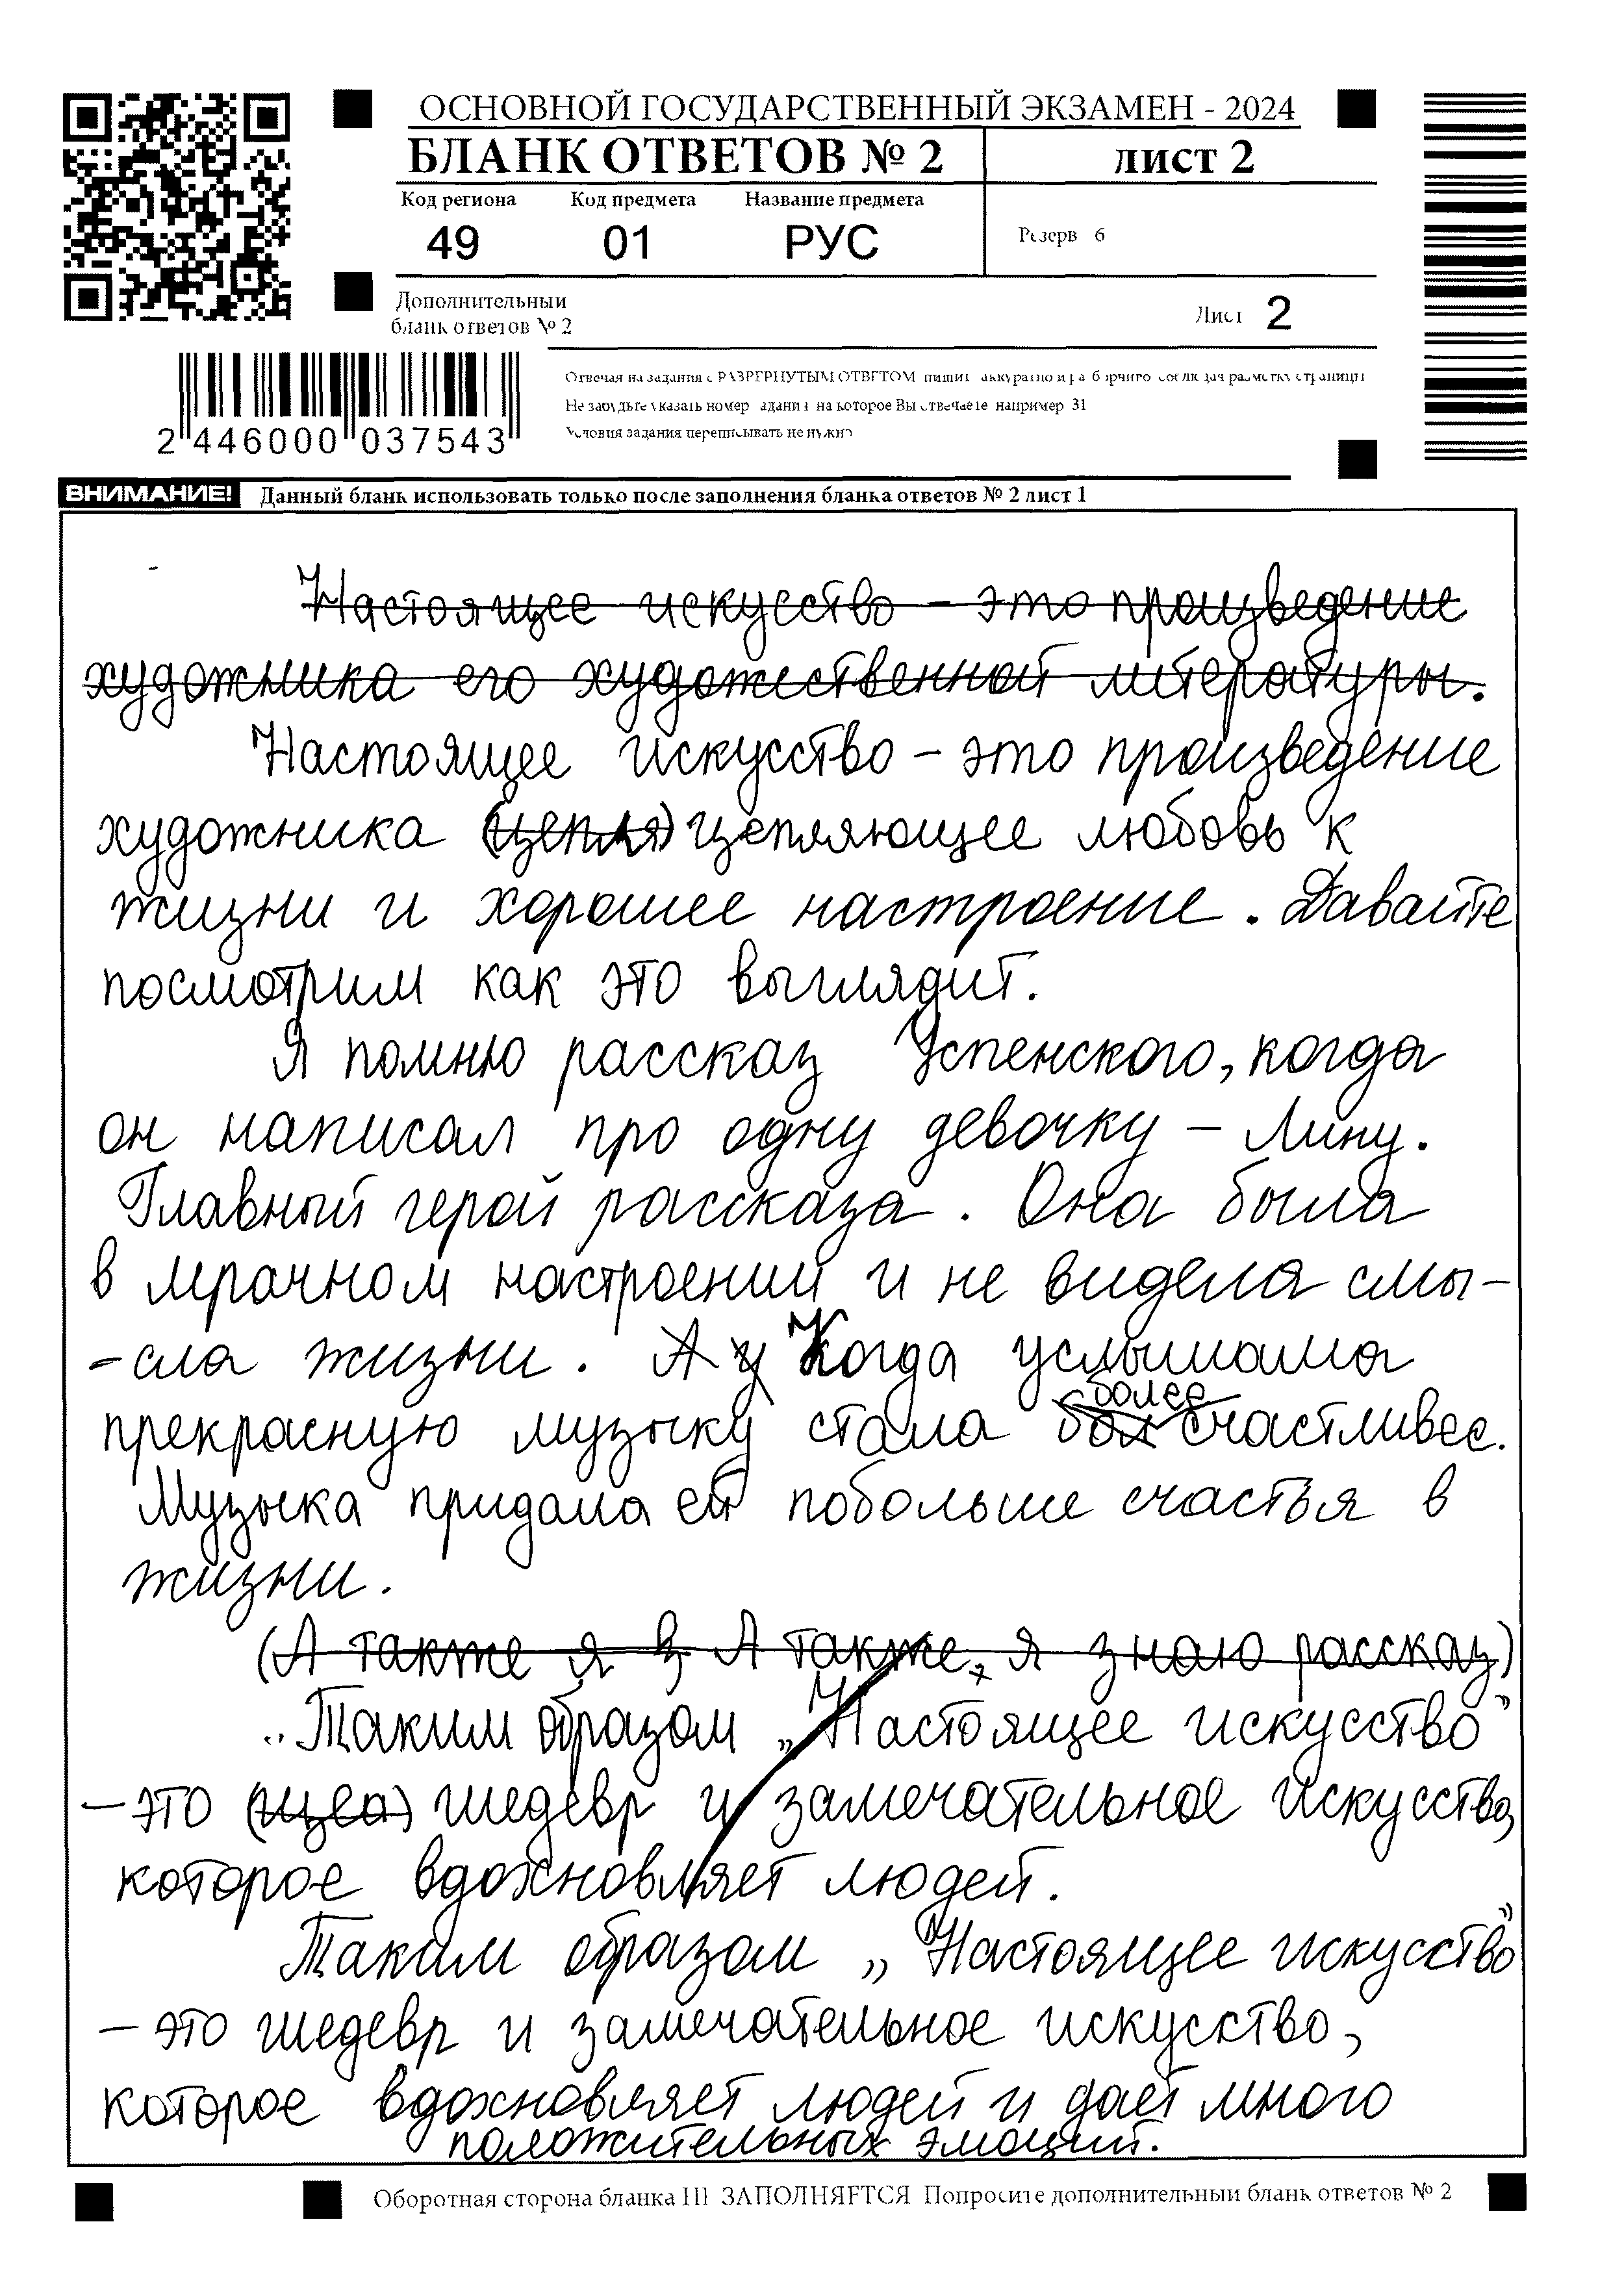 ОСНОВНОЙ ГОСУДАРСТВЕННЫЙ ЭКЗАМЕН - 2024
БЛАНК ОТВЕТОВ № 2
лист 2
Код региона Код предмета Название предмета
49 01 РУС
Резерв 6
Дополнительный
бланк ответов № 2
Лист 2
2 446000 037543
Отвечая на задания с РАЗВЕРНУТЫМ ОТВЕТОМ пишите аккуратно и разборчиво соблюдая разметку страницы
Не забудьте указать номер задания на которое Вы отвечаете например 31
Условия задания переписывать не нужно
ВНИМАНИЕ! Данный бланк использовать только после заполнения бланка ответов № 2 лист 1
Настоящее искусство – это произведение
художника его художественной литературы.
Настоящее искусство – это произведение
художника (цепля) цепляющее любовь к
жизни и хорошее настроение. Давайте
посмотрим как это выглядит.
Я помню рассказ Успенского, когда
он написал про одну девочку – Лину.
Главный герой рассказа. Она была
в мрачном настроении и не видела смы-
-сла жизни. А у Когда услышала
прекрасную музыку стала бол более счастливее.
Музыка придала ей побольше счастья в
жизни.
(А также я з А также, я знаю рассказ)
Таким образом „Настоящее искусство"
– это (щеа) шедевр и замечательное искусство,
которое вдохновляет людей.
Таким образом „Настоящее искусство"
– это шедевр и замечательное искусство,
которое вдохновляет людей и даёт много
положительных эмоций.
Оборотная сторона бланка НЕ ЗАПОЛНЯЕТСЯ Попросите дополнительный бланк ответов № 2